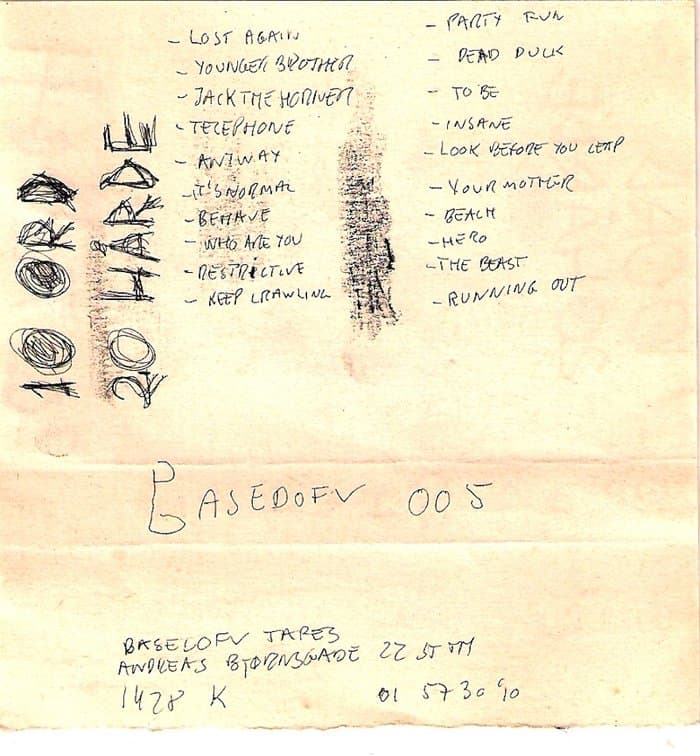 10 ORD
20 HÅRDE
- LOST AGAIN
- YOUNGER BROTHER
- JACK THE HORNER
- TELEPHONE
- ANYWAY
- IT'S NORMAL
- BEHAVE
- WHO ARE YOU
- RESTRICTIVE
- KEEP CRAWLING
- PARTY FUN
- DEAD DUCK
- TO BE
- INSANE
- LOOK BEFORE YOU LEAP
- YOUR MOTHER
- BEACH
- HERO
- THE BEAST
- RUNNING OUT
BASEDOFV 005
BASEDOFV TAPES
ANDREAS BJØRNSGADE 22 ST TH
1428 K 01 573090